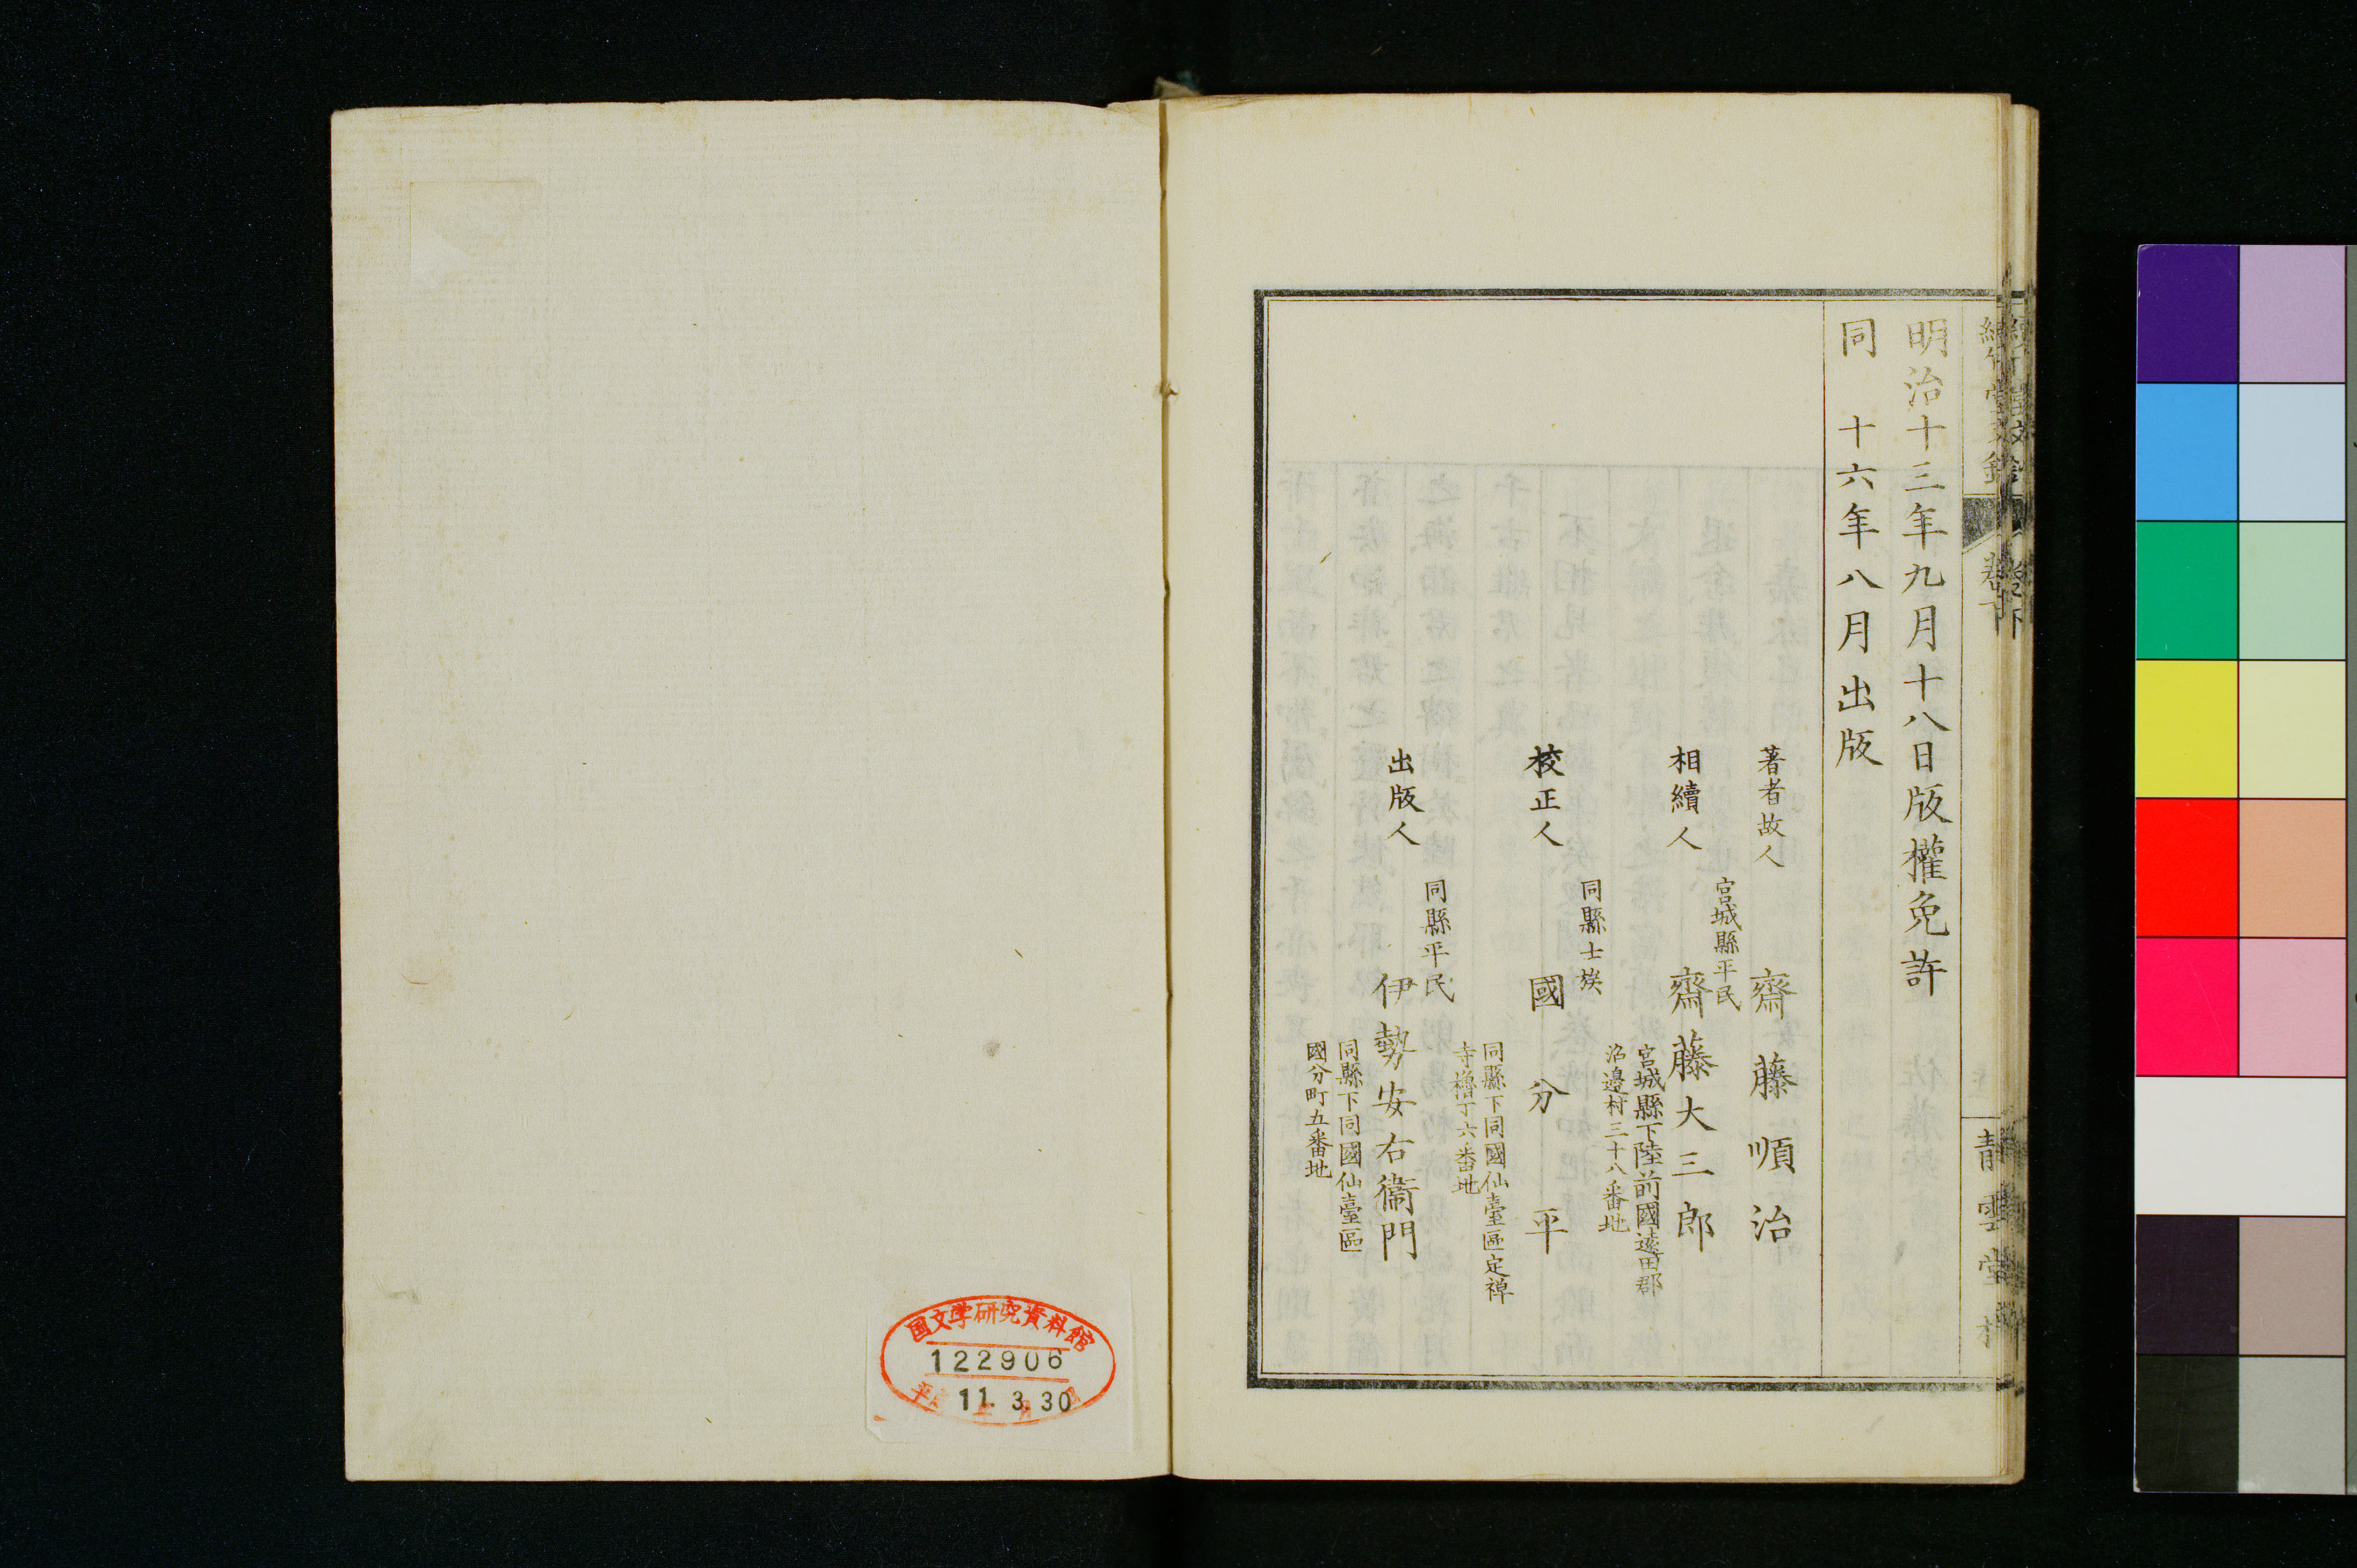 明治十三年九月十八日版權免許
同 十六年八月出版
著者故人 齋藤順治
宮城縣平民
相續人 齋藤大三郎
宮城縣下陸前國遠田郡
沼邊村三十八番地
同縣士族
校正人 國分平
同縣下同國仙臺區定禅
寺櫓丁六番地
同縣平民
出版人 伊勢安右衞門
同縣下同國仙臺區
國分町五番地
卷下
青雲堂
国文学研究資料館
122906
11.3.30